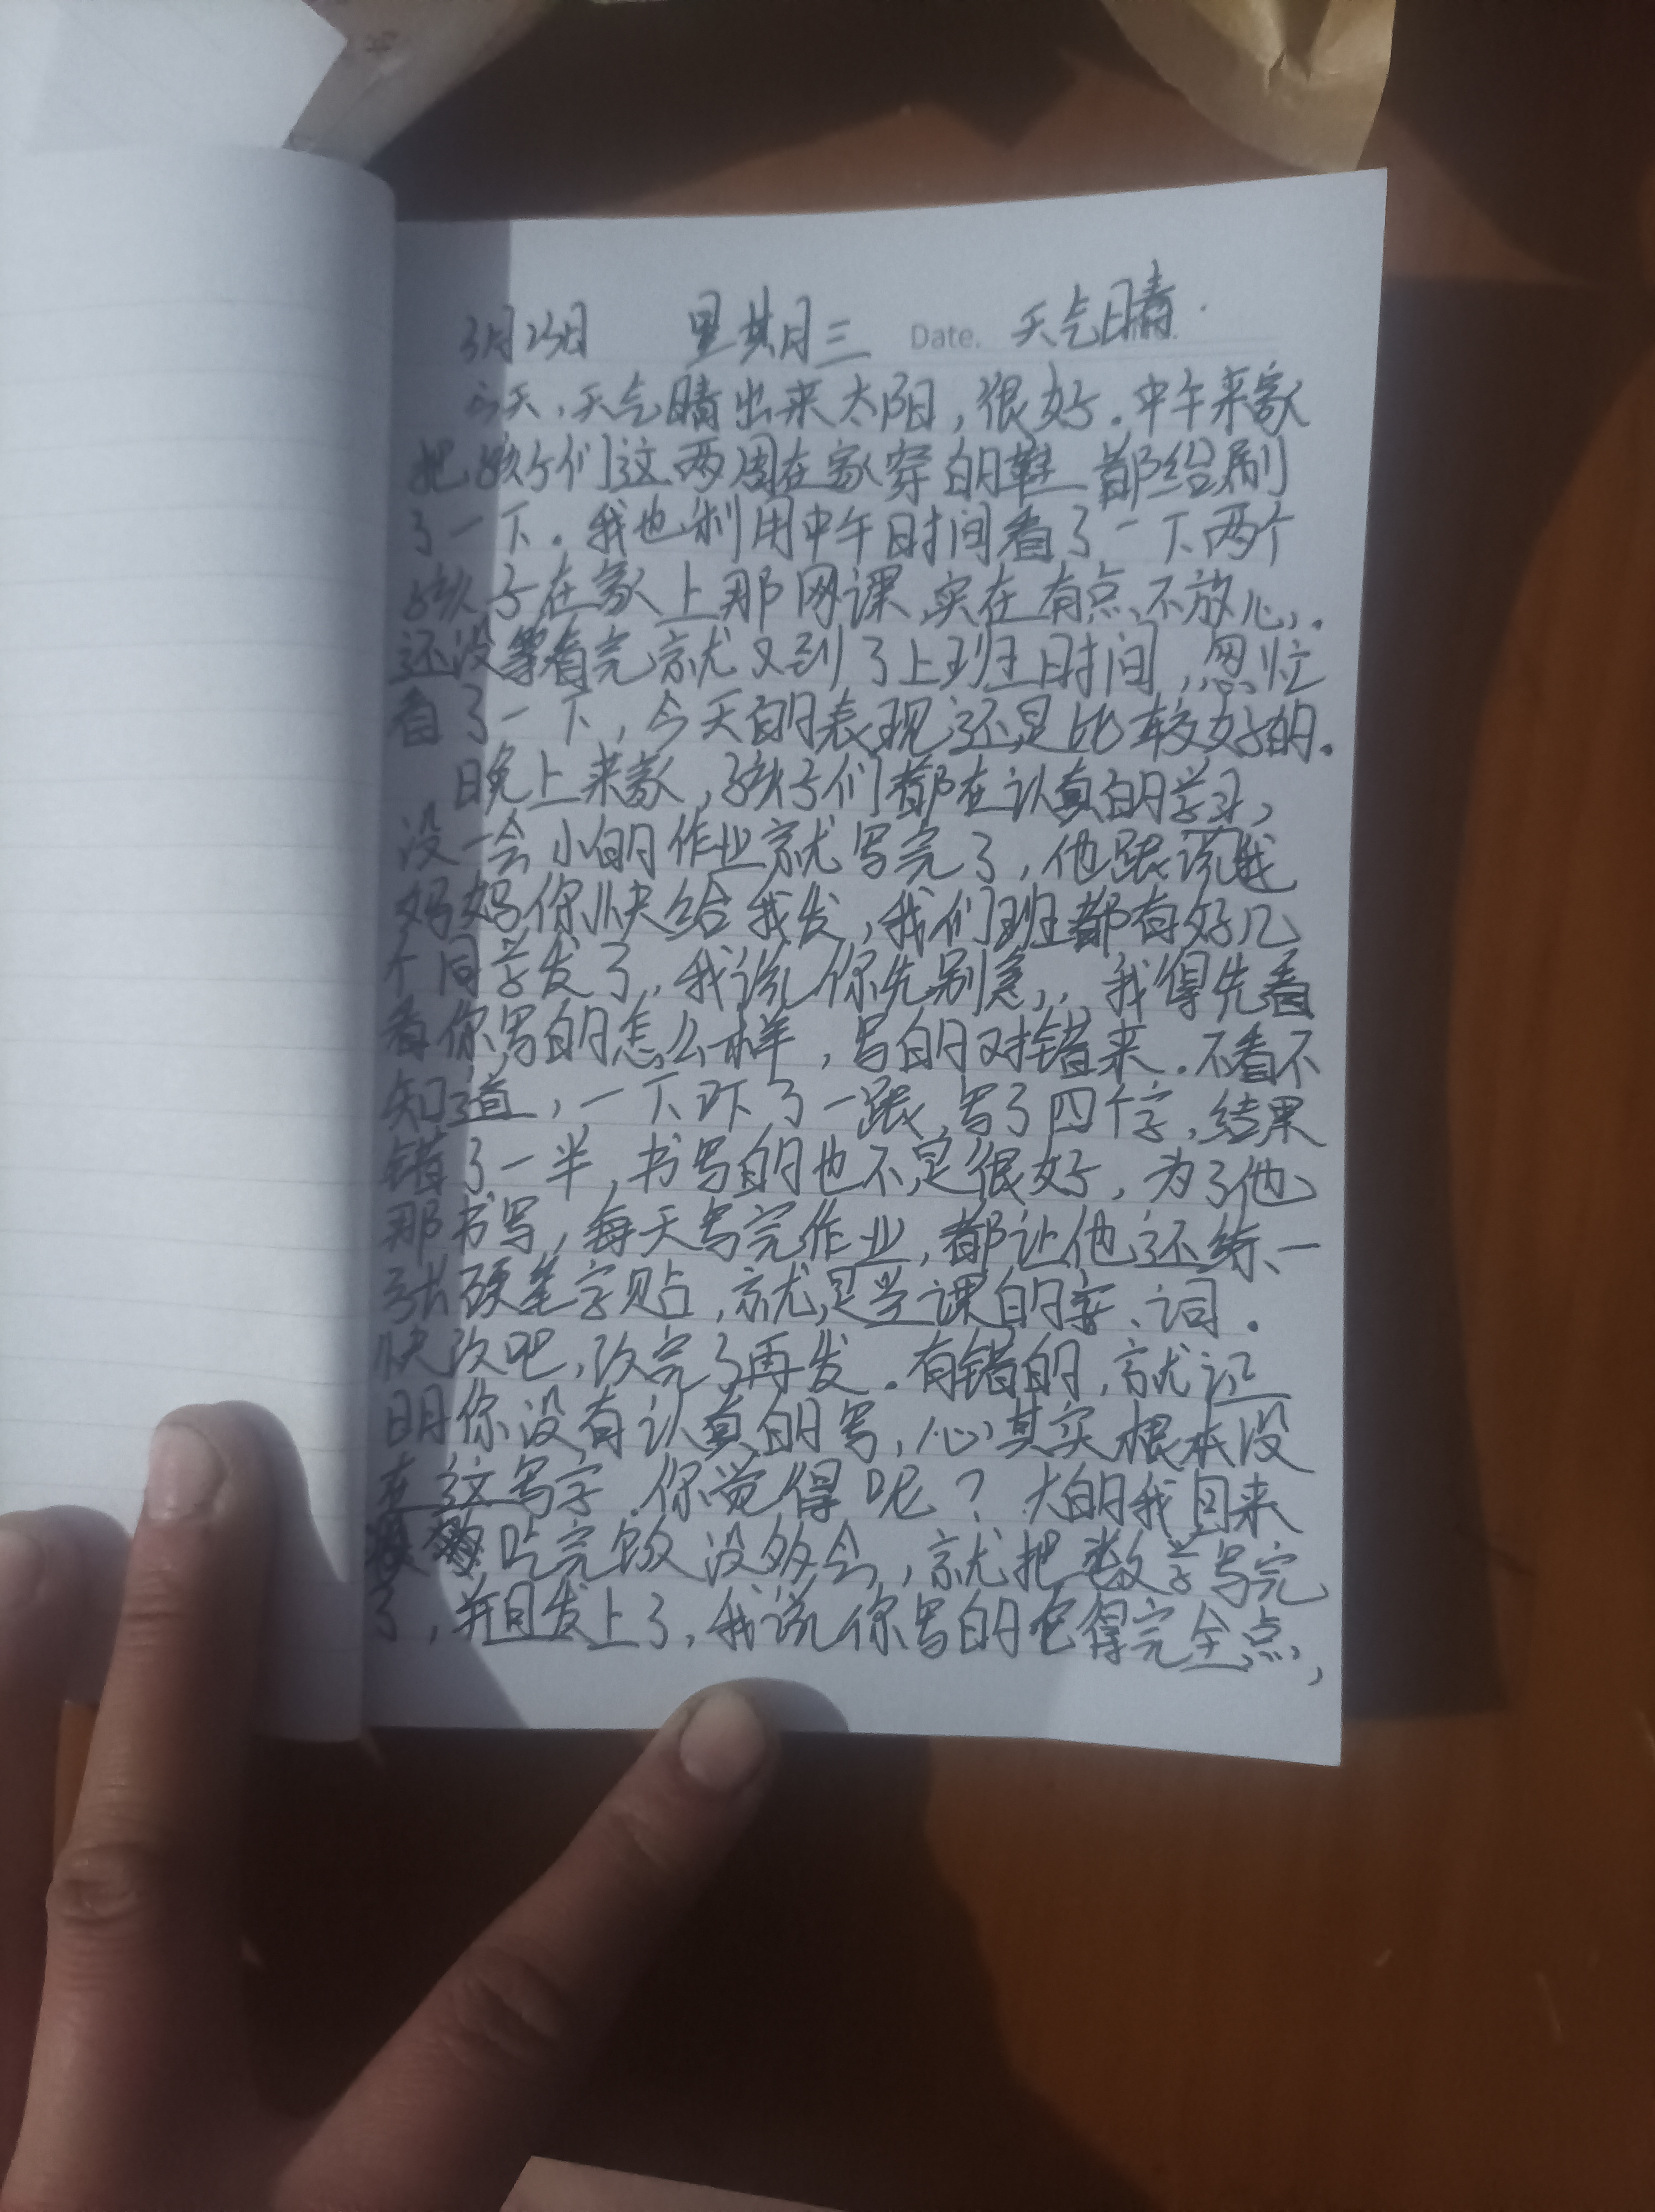 3月23日 星期三 Date. 天气晴.
今天,天气晴出来太阳,很好.中午来家
把孩子们这两周在家穿的鞋都给刷
了一下。我也利用中午时间看了一下两个
孩子在家上那网课,实在有点不放心,.
还没等看完就又到了上班时间,忽忙
看了一下,今天的表现还是比较好的.
晚上来家,孩子们都在认真的学习,
没一会小的作业就写完了,他跟说我
妈妈你快给我发,我们班都有好几
个同学发了,我说你先别急,,我得先看
看你写的怎么样,写的对错来.不看不
知道,一下吓了一跳,写了四个字,结果
错了一半,书写的也不是很好,为了他
那书写,每天写完作业,都让他还练一
张硬笔字贴,就是学课的字、词.
快改吧,改完了再发.有错的,就证
明你没有认真的写,心其实根本没
在这写字.你觉得呢?大的我回来
吃完饭没多会,就把数学写完
了,并且发上了,我说你写的它得完全点,